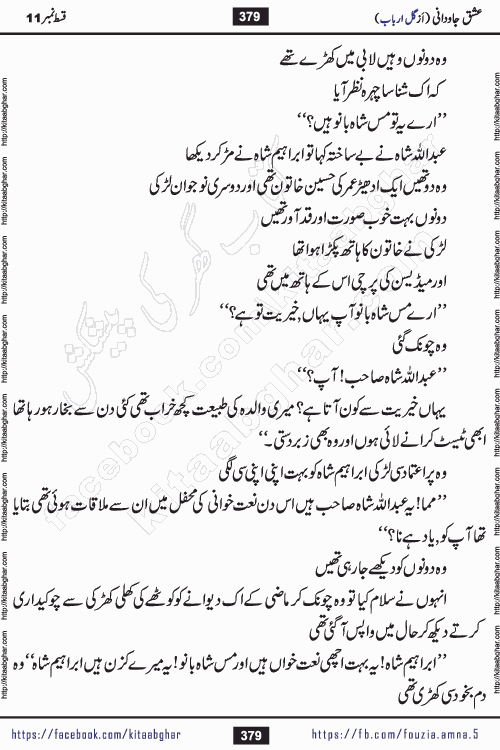 عشق جاودانی (از گل ارباب)
379
قسط نمبر 11
وہ دونوں وہیں لابی میں کھڑے تھے
کہ اک شناسا چہرہ نظر آیا
’’ارے یہ تو مس شاہ بانو ہیں؟‘‘
عبداللہ شاہ نے بے ساختہ کہا تو ابراہیم شاہ نے مڑ کر دیکھا
وہ دو تھیں ایک ادھیڑ عمر کی حسین خاتون تھی اور دوسری نوجوان لڑکی
دونوں بہت خوب صورت اور قد آور تھیں
لڑکی نے خاتون کا ہاتھ پکڑا ہوا تھا
اور میڈیسن کی پرچی اس کے ہاتھ میں تھی
’’ارے مس شاہ بانو آپ یہاں, خیریت تو ہے؟‘‘
وہ چونک گئی
’’عبداللہ شاہ صاحب! آپ؟‘‘
یہاں خیریت سے کون آتا ہے؟ میری والدہ کی طبیعت کچھ خراب تھی کئی دن سے بخار ہو رہا تھا
ابھی ٹیسٹ کرانے لائی ہوں اور وہ بھی زبردستی۔‘‘
وہ پر اعتماد سی لڑکی ابراہیم شاہ کو بہت اپنی اپنی سی لگی
’’مما! یہ عبداللہ شاہ صاحب ہیں اس دن نعت خوانی کی محفل میں ان سے ملاقات ہوئی تھی بتایا
تھا آپ کو, یاد ہے نا؟‘‘
وہ دونوں کو دیکھے جا رہی تھیں
انہوں نے سلام کیا تو وہ چونک کر ماضی کے اک دیوانے کو کوٹھے کی کھلی کھڑکی سے چوکیداری
کرتے دیکھ کر حال میں واپس آ گئی تھی
’’ابراہیم شاہ! یہ بہت اچھی نعت خواں ہیں اور مس شاہ بانو! یہ میرے کزن ہیں ابراہیم شاہ‘‘ وہ
دم بخود سی کھڑی تھی
https://facebook.com/kitaabghar
379
https://fb.com/fouzia.amna.5
http://kitaabghar.com
کتاب گھر کی پیشکش
kitaabghar.com
facebook.com/kitaabghar